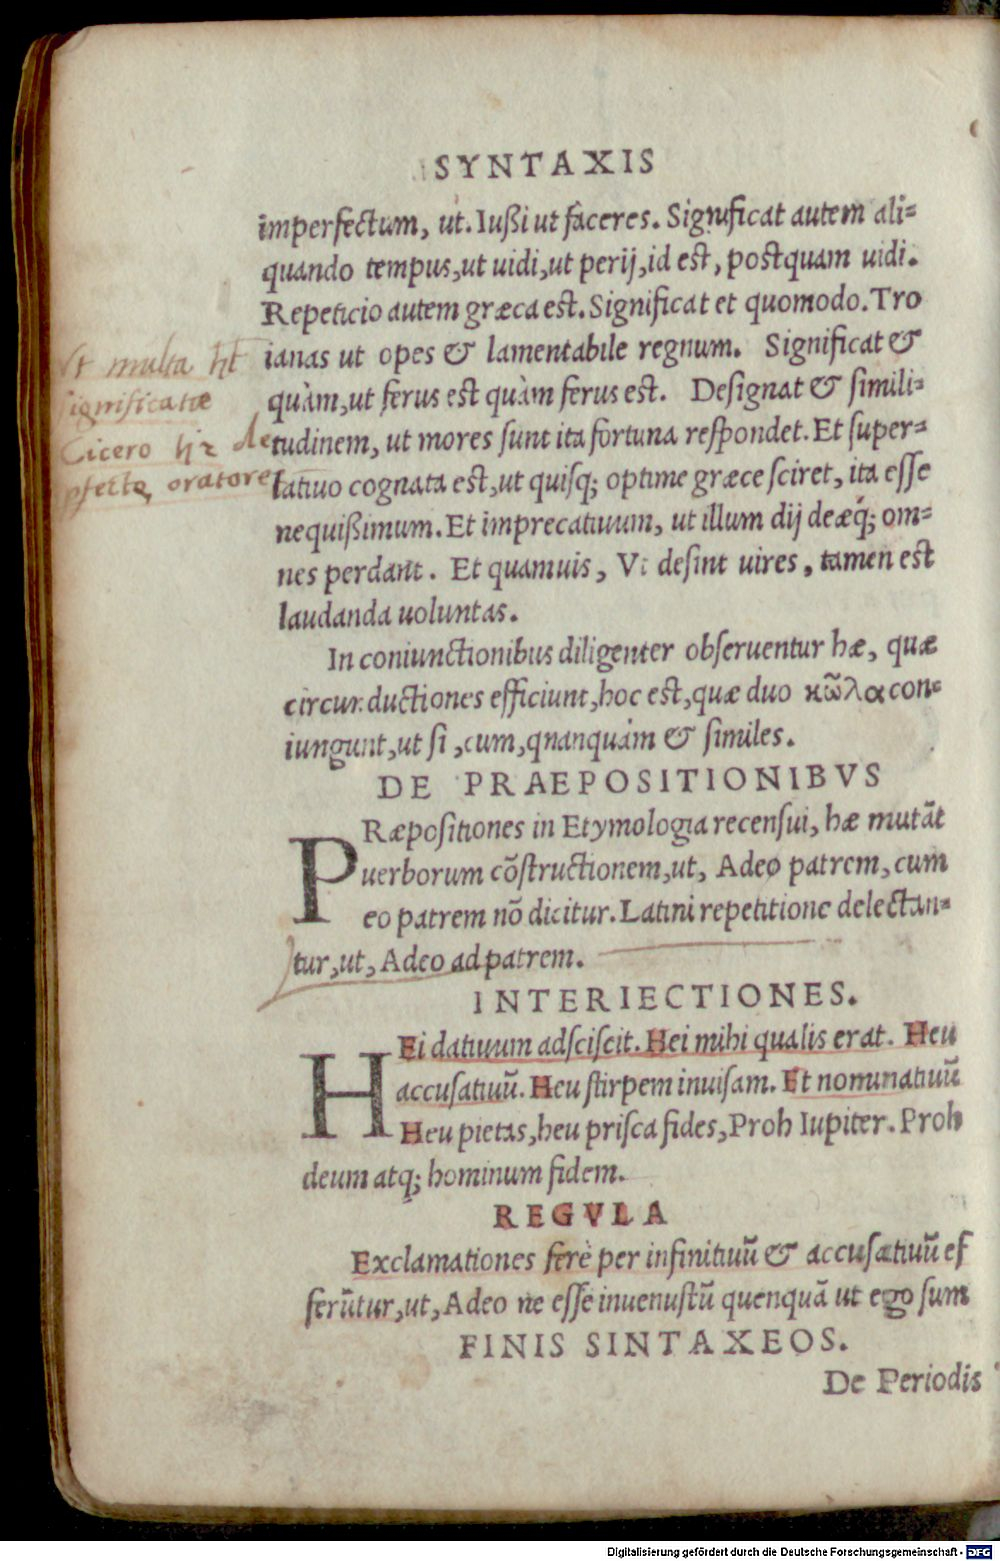 SYNTAXIS
imperfectum, ut. Iußi ut faceres. Significat autem ali=
quando tempus, ut uidi, ut perij, id est, postquam uidi.
Repeticio autem græca est. Significat et quomodo. Tro
ianas ut opes & lamentabile regnum. Significat &
quàm, ut ferus est quàm ferus est. Designat & simili=
tudinem, ut mores sunt ita fortuna respondet. Et super=
latiuo cognata est, ut quisq; optime græce sciret, ita esse
nequißimum. Et imprecatiuum, ut illum dij deæq́; om=
nes perdant. Et quamuis, Vt desint uires, tamen est
laudanda uoluntas.
Vt multa
significatiõe
Cicero de
pfecto oratore
In coniunctionibus diligenter obseruentur hæ, quæ
circunductiones efficiunt, hoc est, quæ duo κῶλα con=
iungunt, ut si, cum, qnanquàm & similes.
DE PRAEPOSITIONIBVS
PRæpositiones in Etymologia recensui, hæ mutãt
uerborum cõstructionem, ut, Adeo patrem, cum
eo patrem nõ dicitur. Latini repetitione delectan=
tur, ut, Adeo ad patrem.
INTERIECTIONES.
HEi datiuum adsciscit. Hei mihi qualis erat. Heu
accusatiuũ. Heu stirpem inuisam. Et nominatiuũ
Heu pietas, heu prisca fides, Proh Iupiter. Proh
deum atq; hominum fidem.
REGVLA
Exclamationes ferè per infinitiuũ & accusatiuũ ef
ferũtur, ut, Adeo ne esse inuenustũ quenquã ut ego sum
FINIS SINTAXEOS.
De Periodis
Digitalisierung gefördert durch die Deutsche Forschungsgemeinschaft - DFG